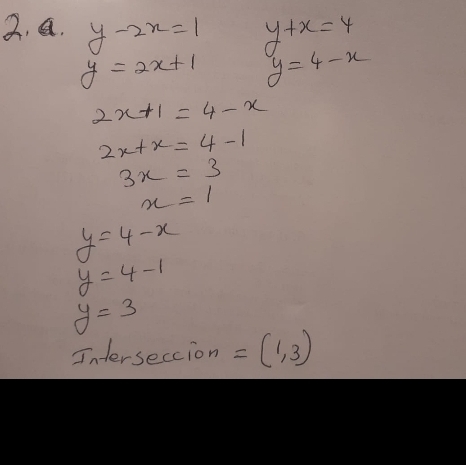 2. a. y - 2x = 1 y + x = 4
y = 2x + 1 y = 4 - x
2x + 1 = 4 - x
2x + x = 4 - 1
3x = 3
x = 1
y = 4 - x
y = 4 - 1
y = 3
Interseccion = (1,3)